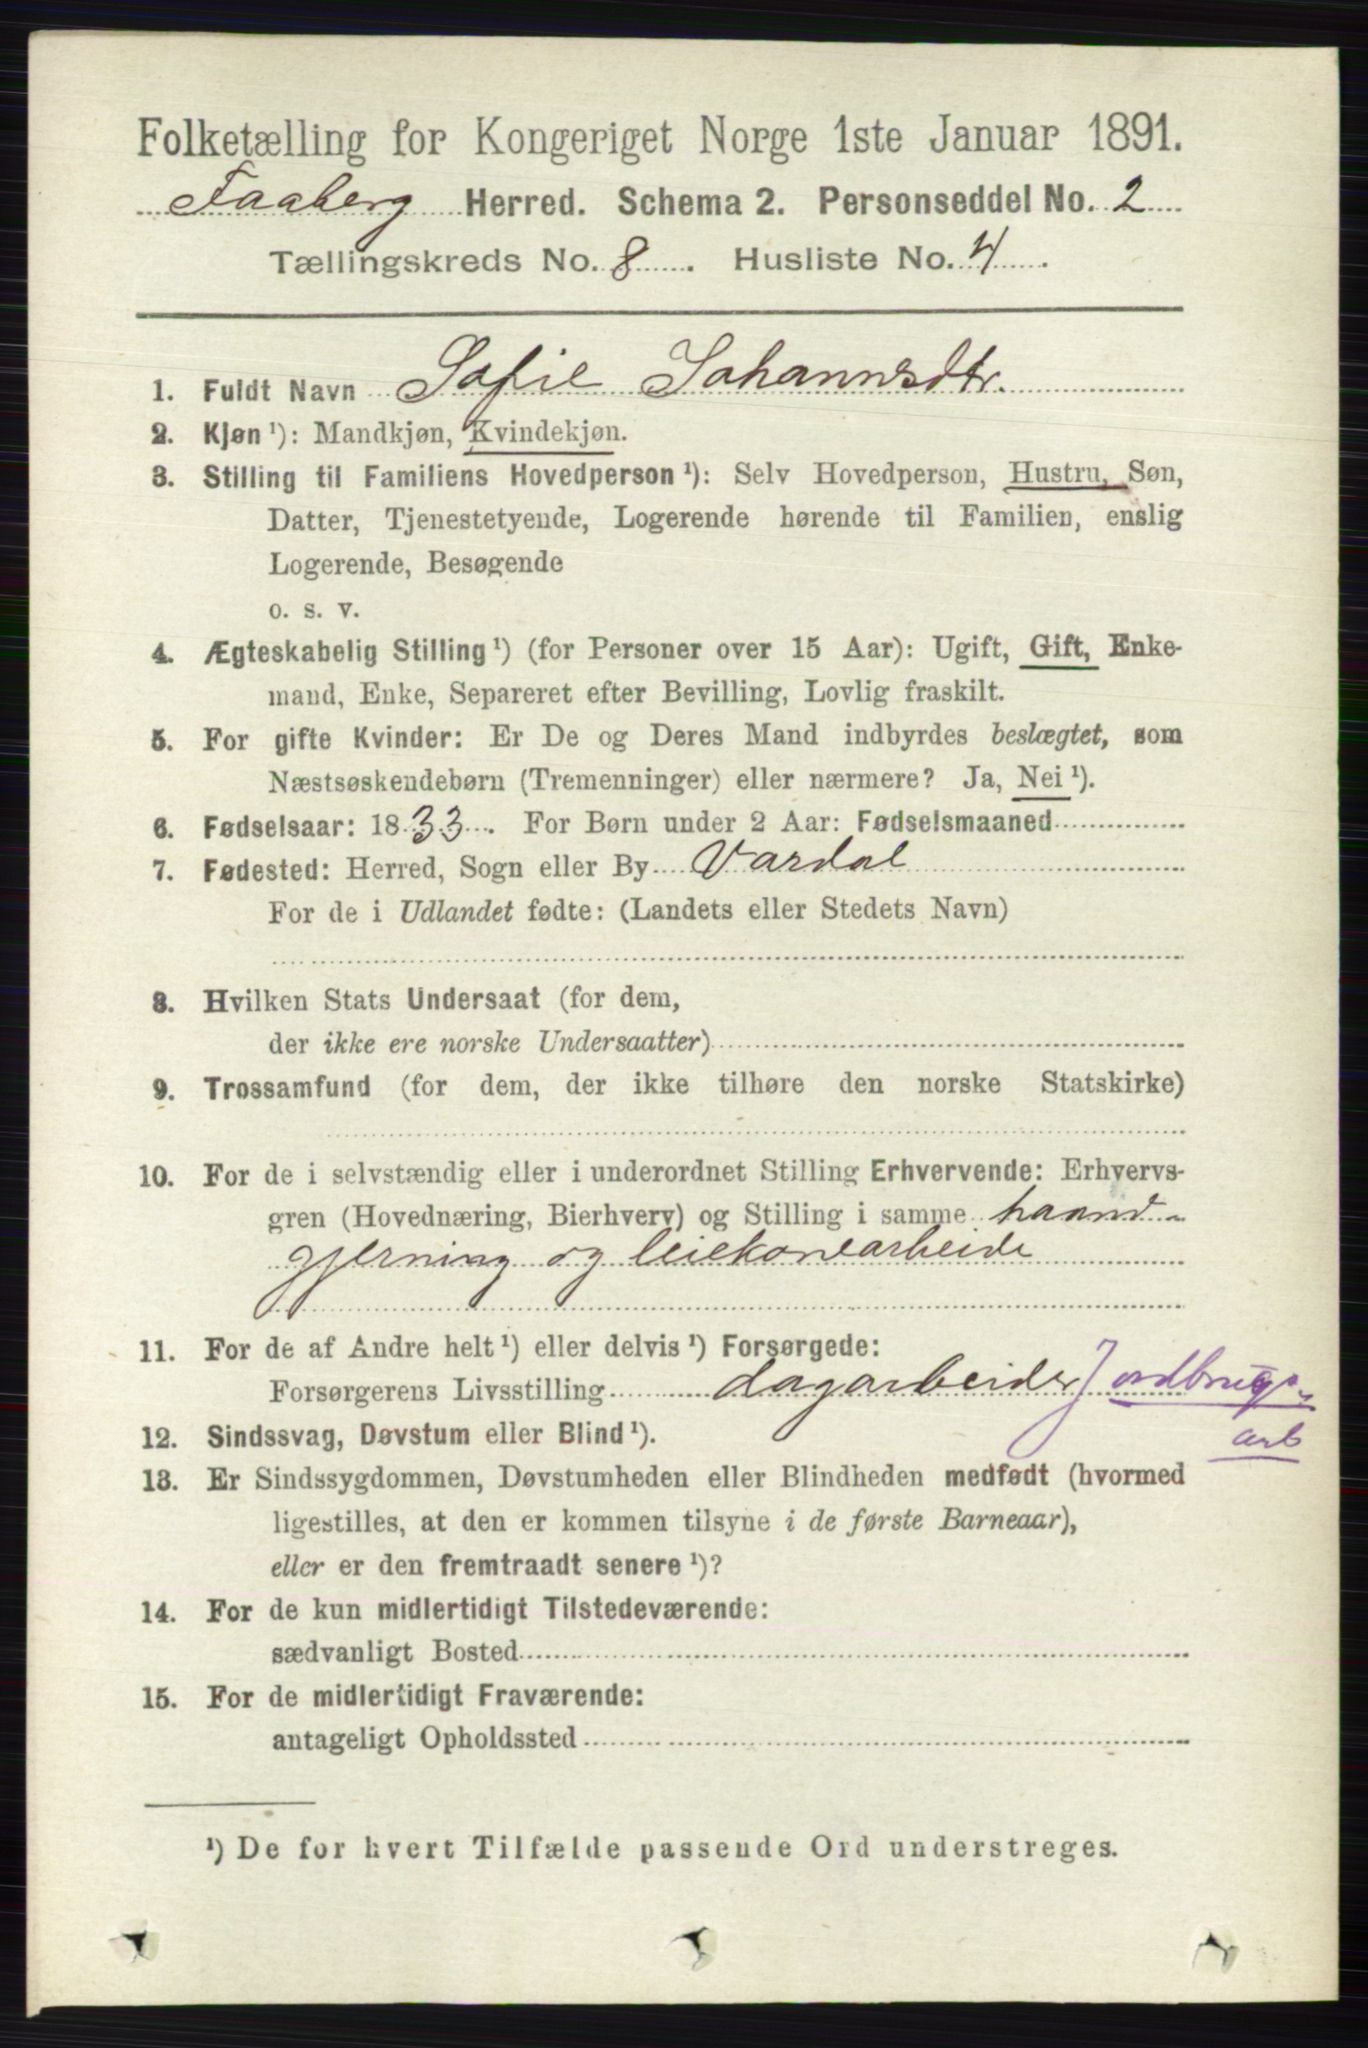 Folketælling for Kongeriget Norge 1ste Januar 1891.
Faaberg Herred. Schema 2. Personseddel No. 2
Tællingskreds No. 8. Husliste No. 4.
1. Fuldt Navn Sofie Johannesdtr.
2. Kjøn ¹): Mandkjøn, Kvindekjøn.
3. Stilling til Familiens Hovedperson ¹): Selv Hovedperson, Hustru, Søn,
Datter, Tjenestetyende, Logerende hørende til Familien, enslig
Logerende, Besøgende
o. s. v.
4. Ægteskabelig Stilling ¹) (for Personer over 15 Aar): Ugift, Gift, Enke-
mand, Enke, Separeret efter Bevilling, Lovlig fraskilt.
5. For gifte Kvinder: Er De og Deres Mand indbyrdes beslægtet, som
Næstsøskendebørn (Tremenninger) eller nærmere? Ja, Nei ¹).
6. Fødselsaar: 1833. For Børn under 2 Aar: Fødselsmaaned
7. Fødested: Herred, Sogn eller By Vardal
For de i Udlandet fødte: (Landets eller Stedets Navn)
8. Hvilken Stats Undersaat (for dem,
der ikke ere norske Undersaatter)
9. Trossamfund (for dem, der ikke tilhøre den norske Statskirke)
10. For de i selvstændig eller i underordnet Stilling Erhvervende: Erhvervs-
gren (Hovednæring, Bierhverv) og Stilling i samme haand-
gjerning og leiekonearbeide
11. For de af Andre helt ¹) eller delvis ¹) Forsørgede:
Forsørgerens Livsstilling dagarbeider Jordbrugs-
arb
12. Sindssvag, Døvstum eller Blind ¹).
13. Er Sindssygdommen, Døvstumheden eller Blindheden medfødt (hvormed
ligestilles, at den er kommen tilsyne i de første Barneaar),
eller er den fremtraadt senere ¹)?
14. For de kun midlertidigt Tilstedeværende:
sædvanligt Bosted
15. For de midlertidigt Fraværende:
antageligt Opholdssted
¹) De for hvert Tilfælde passende Ord understreges.